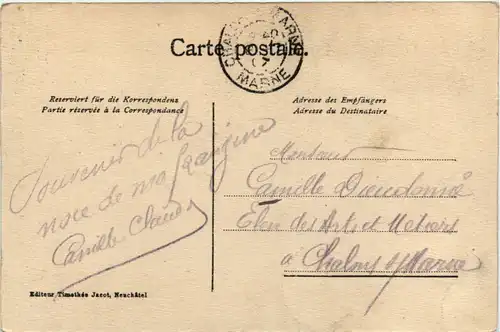 Carte postale.
CHALONS-S-MARNE
MARNE
Reserviert für die Korrespondenz
Partie réservée à la Correspondance
Adresse des Empfängers
Adresse du Destinataire
Souvenir de la
noce de ma
Camille
Monsieur
Camille
Elève des Arts et Métiers
à Chalons s/Marne
Editeur Timothée Jacot, Neuchâtel